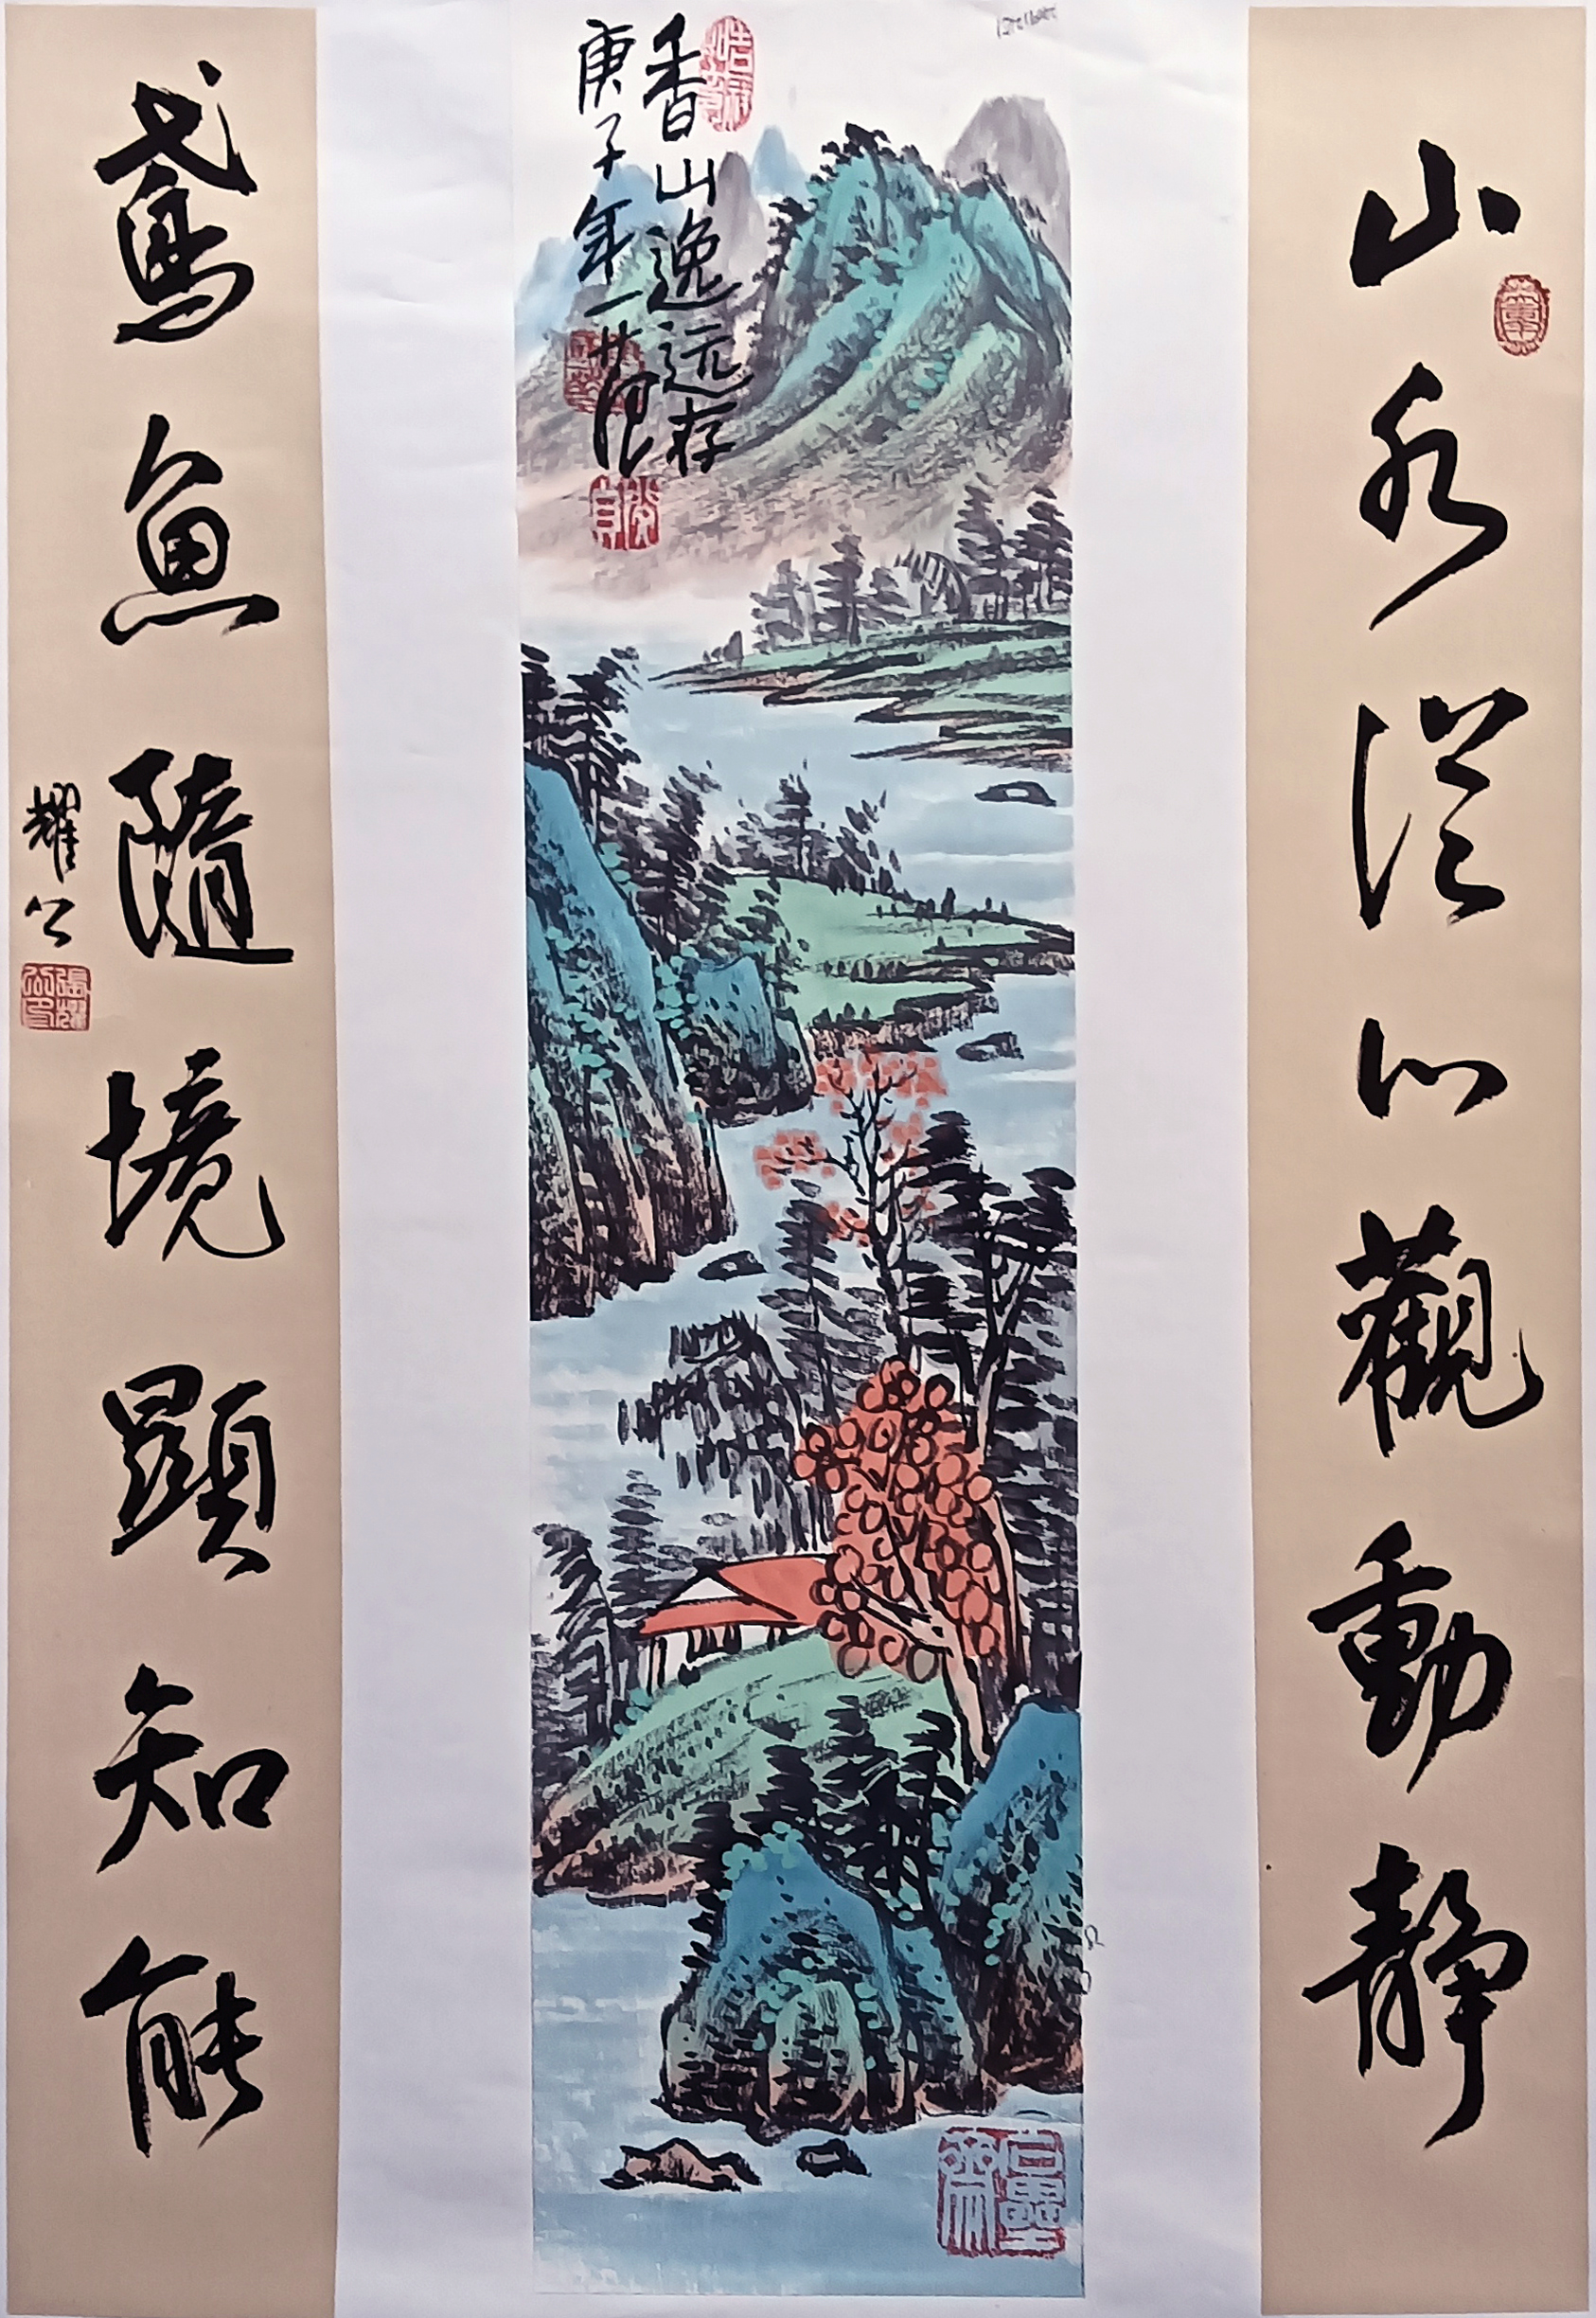 山水從心觀動靜
香山逸远存
庚子年一
鳶魚隨境顯知能
耀公